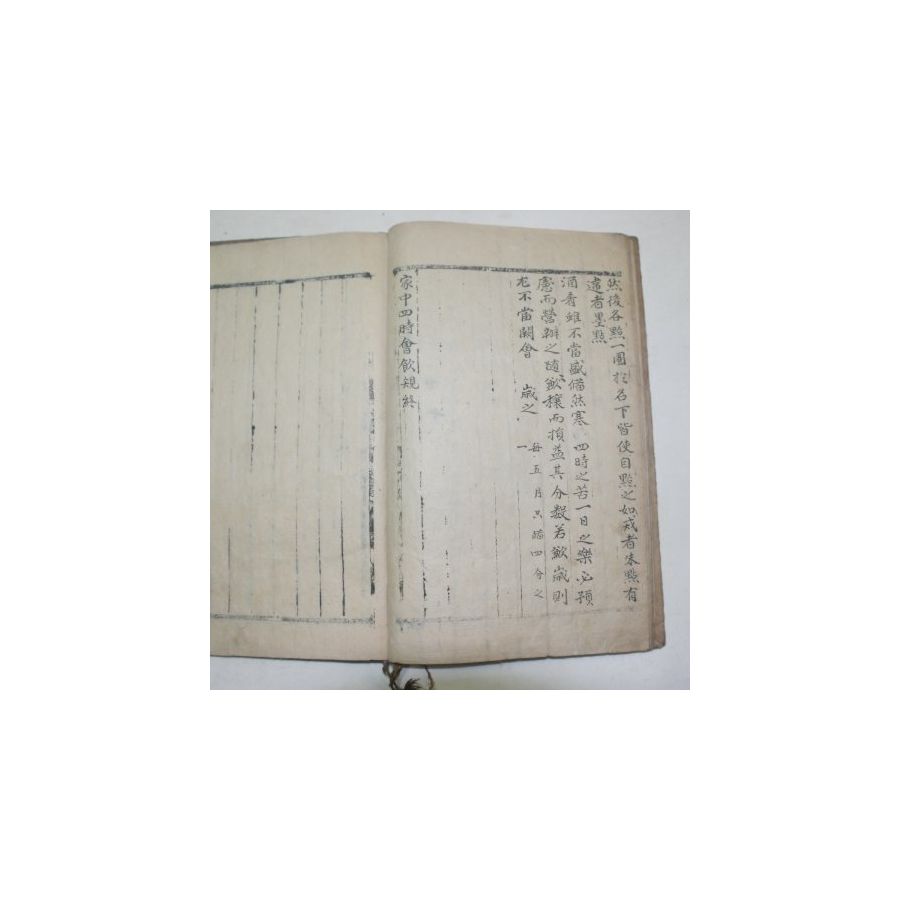 然後各點一圈於名下皆使自點之如戒者朱點有
違者墨點
酒肴雖不當盛備然寒 四時之苦一日之樂必預
慮而營辦之隨歉穰而損益其分數若歉歲則
尤不當闕會 歲之 每五月只 四分之
一
家中四時會飮規終